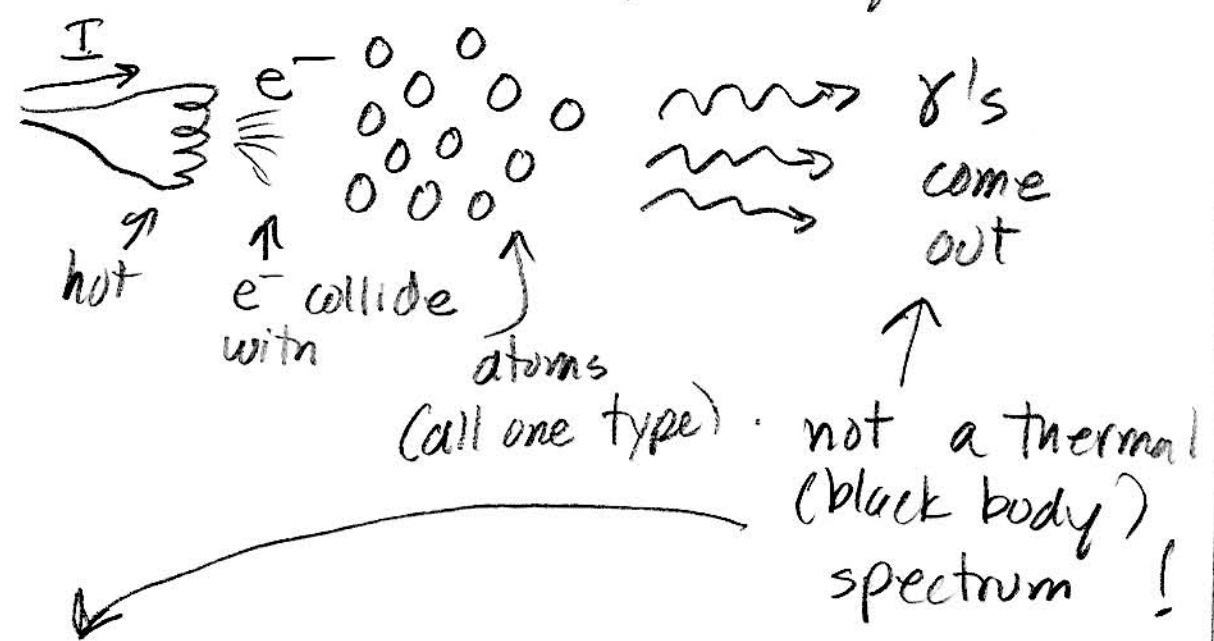 I
e⁻
γ's
come
out
hot
e⁻ collide
with
atoms
(all one type).
not a thermal
(black body)
spectrum!